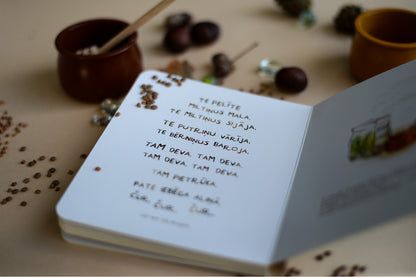 TE PELĪTE
MILTIŅUS MALA,
TE MILTIŅUS SIJĀJA,
TE PUTRIŅU VĀRĪJA,
TE BĒRNIŅUS BAROJA.
TAM DEVA, TAM DEVA,
TAM DEVA, TAM DEVA,
TAM PIETRŪKA,
PATE IEBĒGA ALIŅĀ
ČUR, ČUR, ČUR.